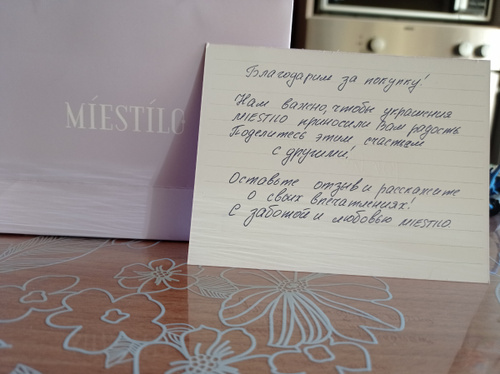 MÍESTÍLO
Благодарим за покупку!
Нам важно, чтобы украшения
MIESTILO приносили Вам радость
Поделитесь этим счастьем
с другими!
Оставьте отзыв и расскажите
о своих впечатлениях!
С заботой и любовью MIESTILO.